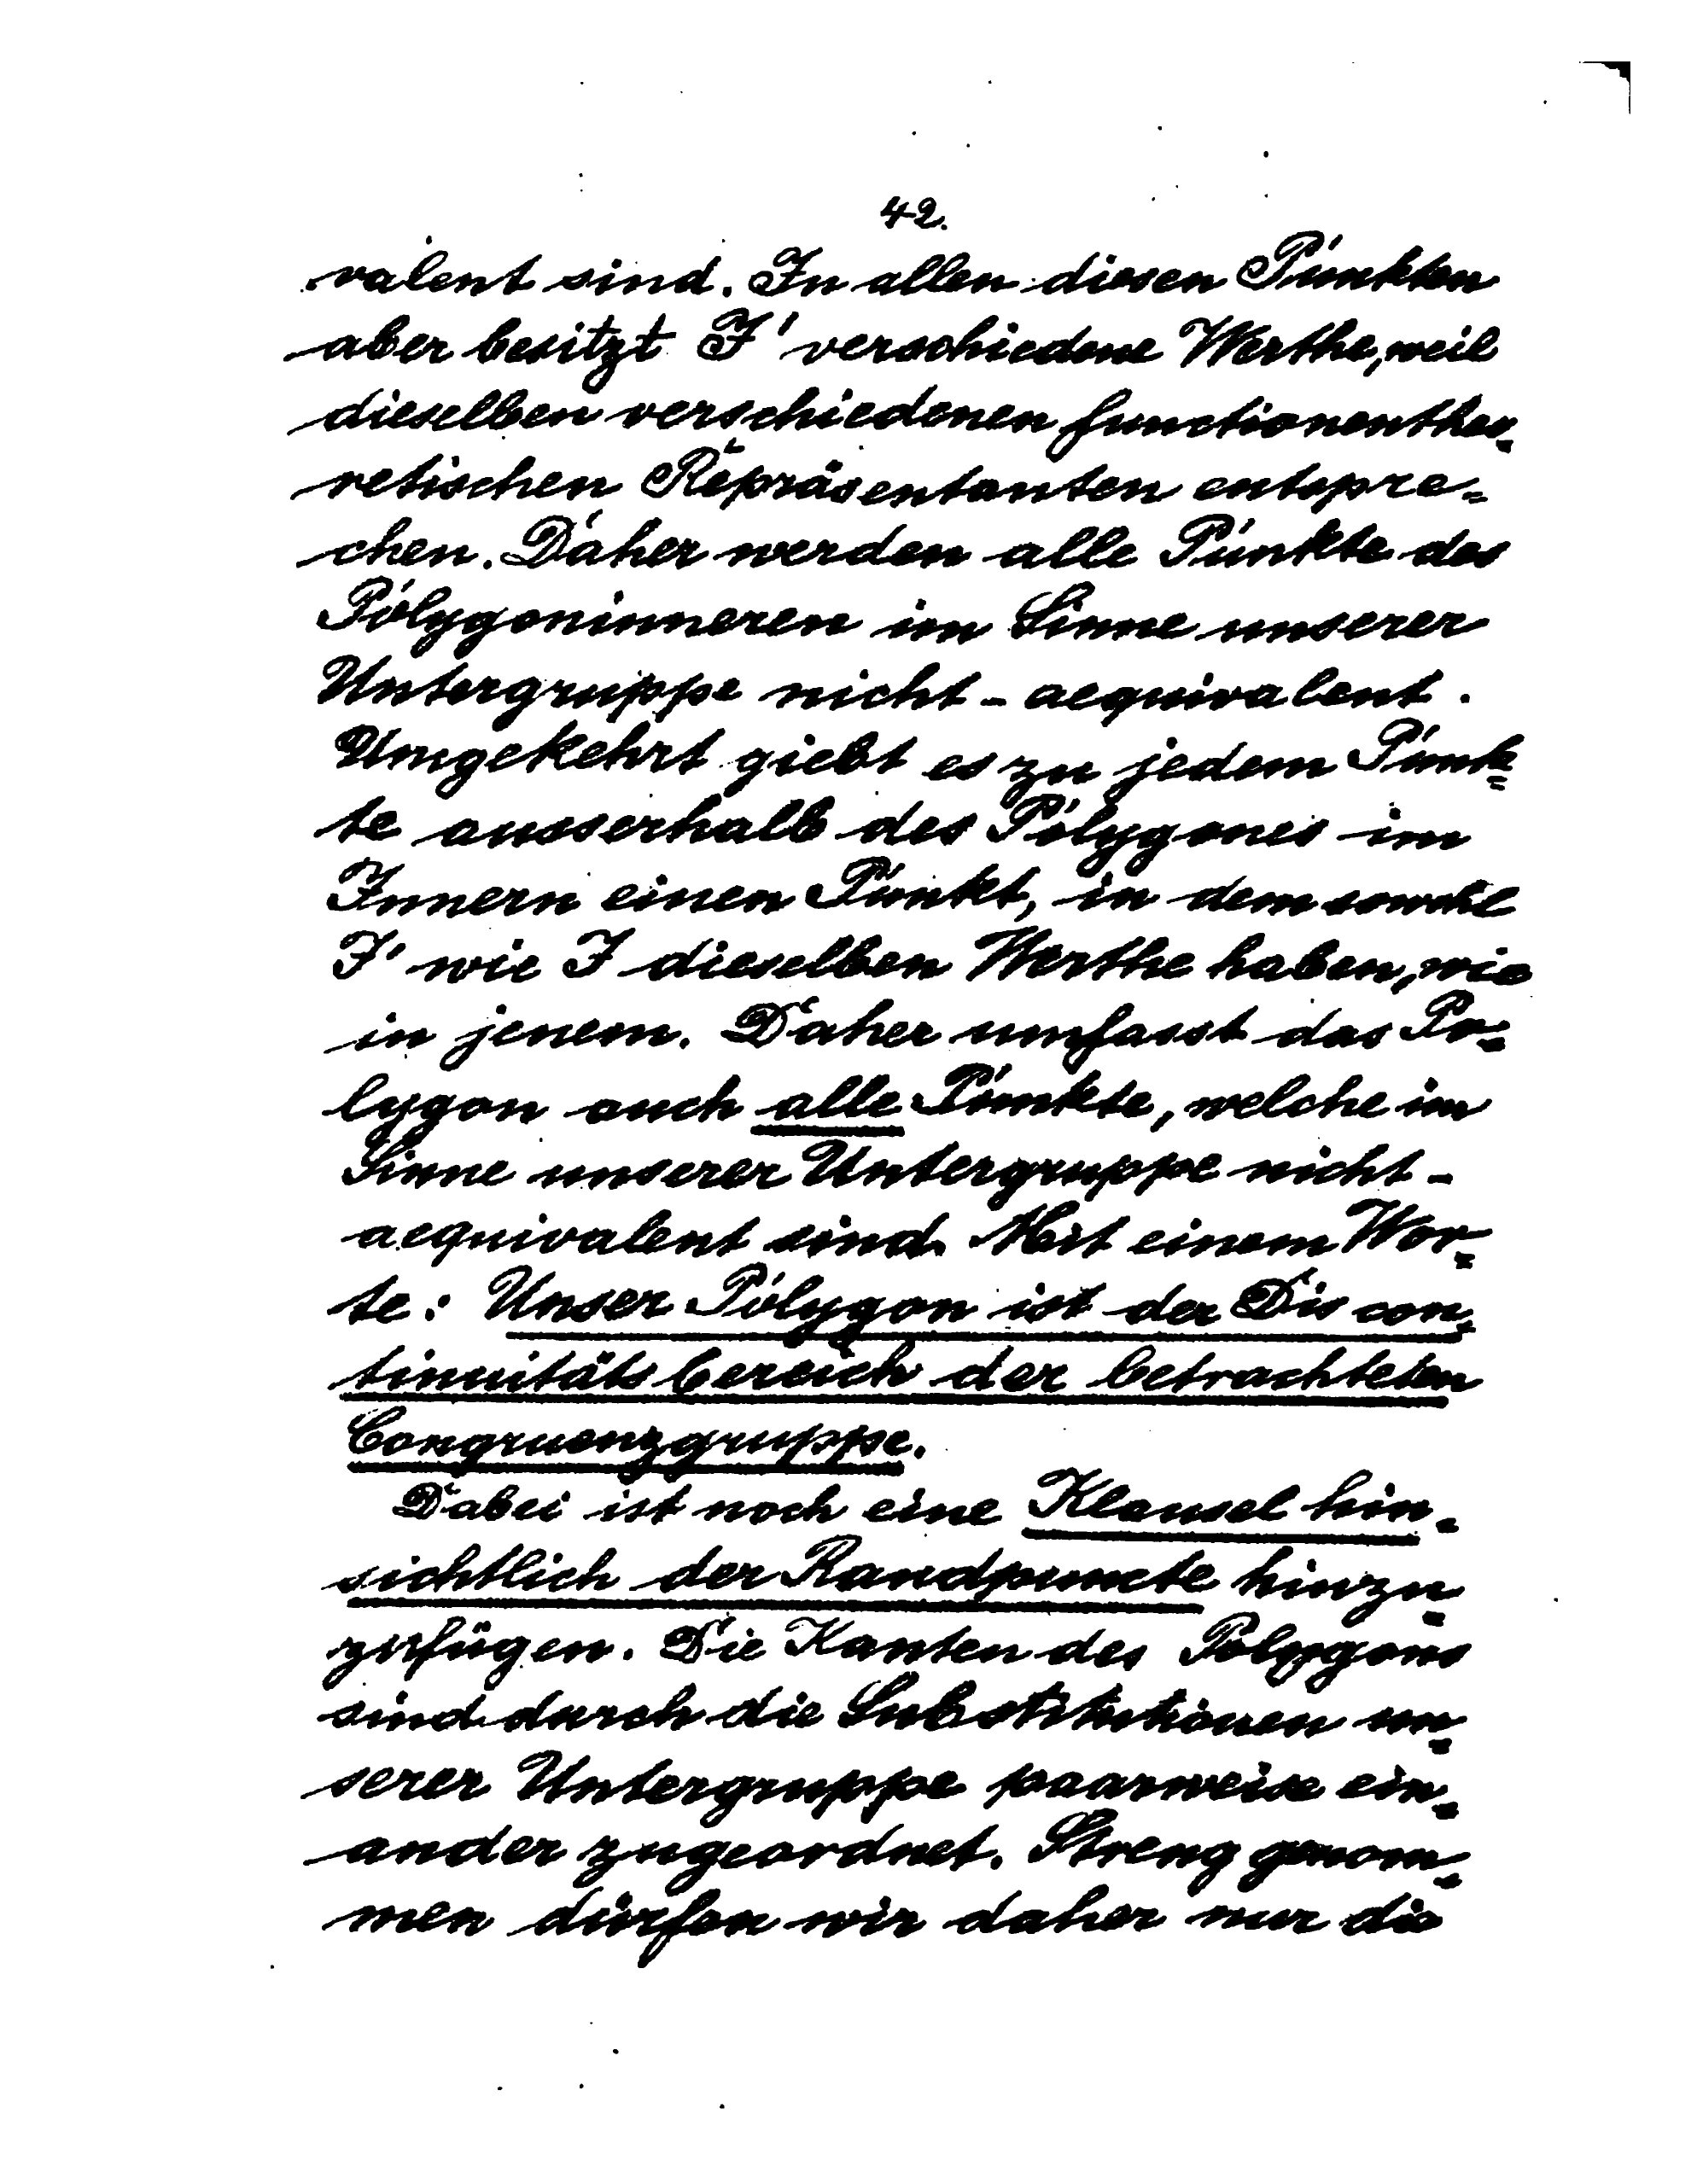 42.
valent sind. In allen diesen Punkten
aber besitzt J' verschiedene Werthe, weil
dieselben verschiedenen functionentheo=
retischen Repräsentanten entspre=
chen. Daher werden alle Punkte des
Polygoninneren im Sinne unserer
Untergruppe nicht-aequivalent.
Umgekehrt giebt es zu jedem Punk=
te ausserhalb des Polygones im
Innern einen Punkt, in dem sowohl
J' wie J dieselben Werthe haben, wie
in jenem. Daher umfasst das Po=
lygon auch alle Punkte, welche im
Sinne unserer Untergruppe nicht-
aequivalent sind. Mit einem Wor=
te: Unser Polygon ist der Discon=
tinuitätsbereich der betrachteten
Congruenzgruppe.
Dabei ist noch eine Klausel hin=
sichtlich der Randpuncte hinzu=
zufügen. Die Kanten des Polygons
sind durch die Substitutionen un=
serer Untergruppe paarweise ein=
ander zugeordnet. Streng genom=
men dürfen wir daher nur die